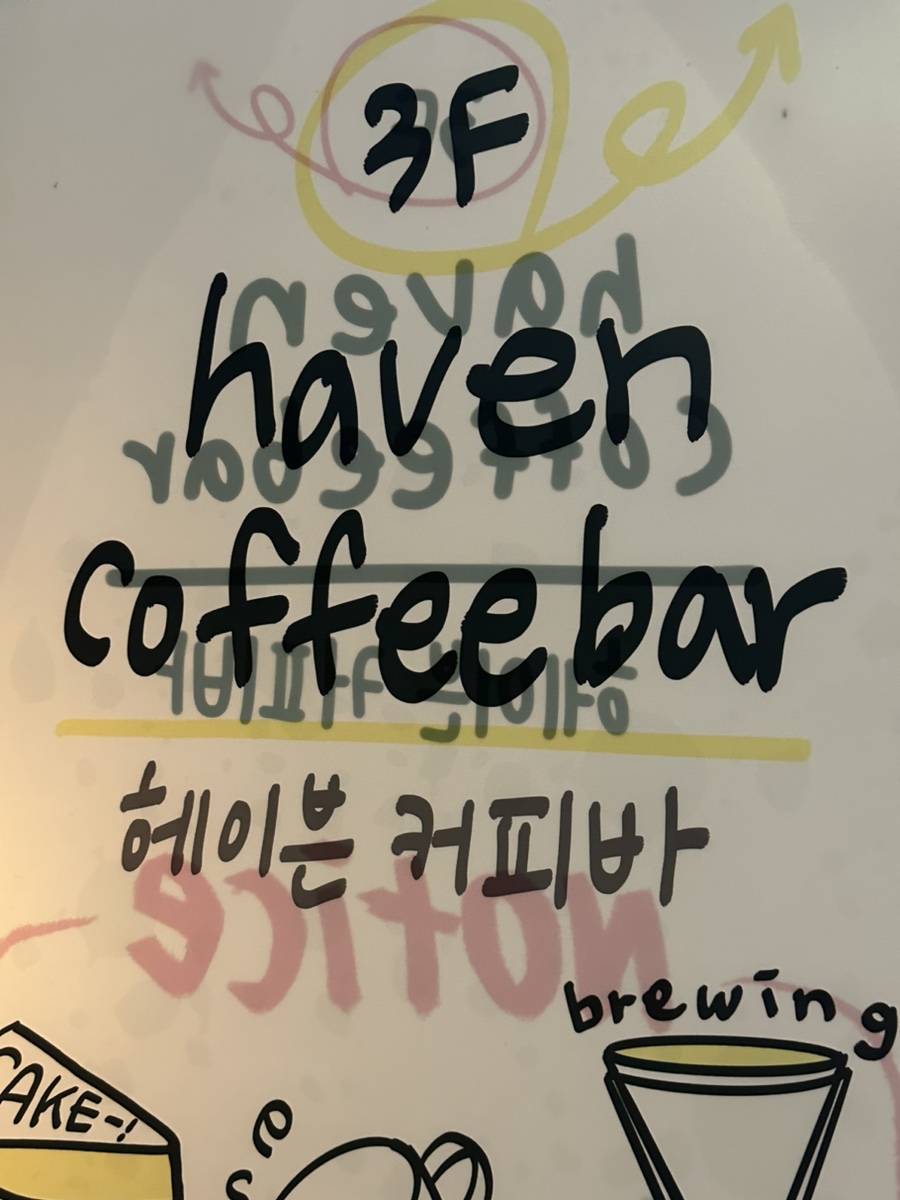 3F
haven
coffeebar
헤이븐 커피바
notice
brewing
CAKE-!